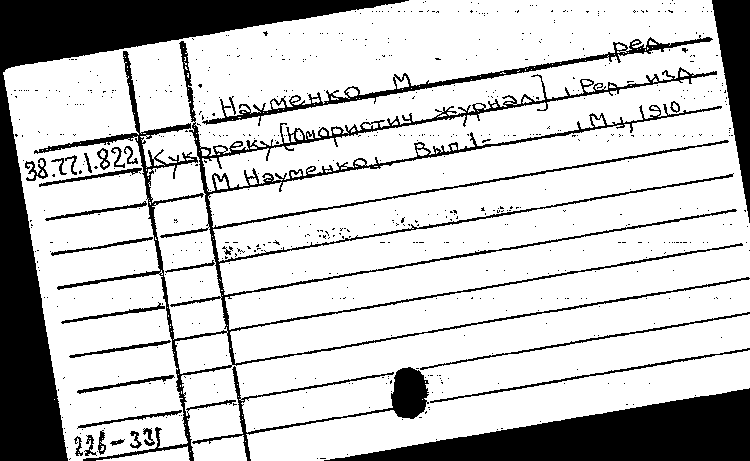 Науменко, М. ред.
38.77.1.822. Кукареку. [Юмористич. журнал.], Ред.-изд.
М. Науменко, Вып. 1- , М., 1910.
226-331